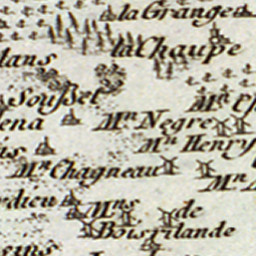 la Grange
la Chaupe
lans
Soussel
Mn Negre
ena
Mn Henry
Mn Chagneau
dieu
Mns de
Boisrilande